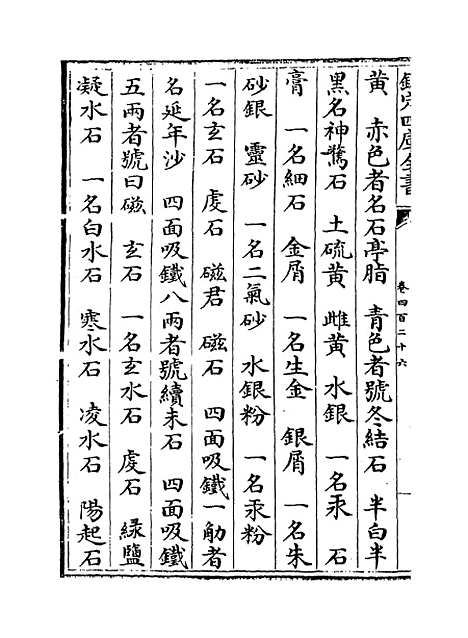 欽定四庫全書
卷四百二十六
黄 赤色者名石亭脂 青色者號冬結石 半白半
黑名神驚石 土硫黄 雌黄 水銀 一名汞 石
膏 一名細石 金屑 一名生金 銀屑 一名朱
砂銀 靈砂 一名二氣砂 水銀粉 一名汞粉
一名玄石 䖏石 磁君 磁石 四面吸鐵一觔者
名延年沙 四面吸鐵八兩者號續未石 四面吸鐵
五兩者號曰磁 玄石 一名玄水石 䖏石 緑鹽
凝水石 一名白水石 寒水石 凌水石 陽起石